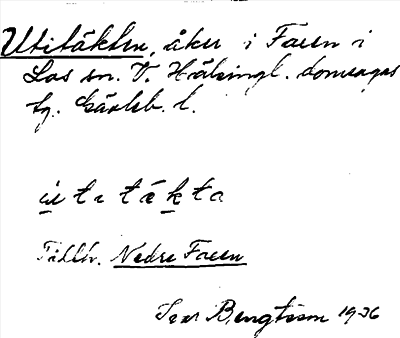 Utitäkten, åker i Faen i
Los sn. V. Hälsingl. domsagas
tg. Gävleb. l.
ùtitäkta
Tillh. Nedre Faen
Bengtsson 1936